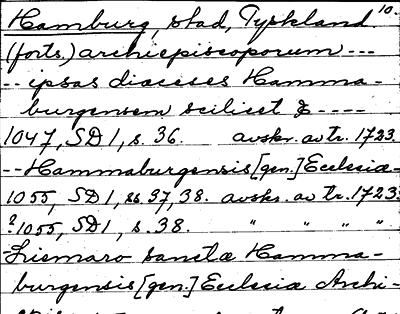 Hamburg, stad, Tyskland 10.
(forts.) archiepiscoporum ---
-- ipsas dioceses Hamma-
burgensem scilicet & ----
1047, SD 1, s. 36. avskr. av tr. 1723.
-- Hammaburgensis [gen.] Ecclesia-
1055, SD 1, ss. 37, 38. avskr. av tr. 1723.
? 1055, SD 1, s. 38. " " " "
Liemaro sanctæ Hamma-
burgensis [gen.] Ecclesiæ Archi-